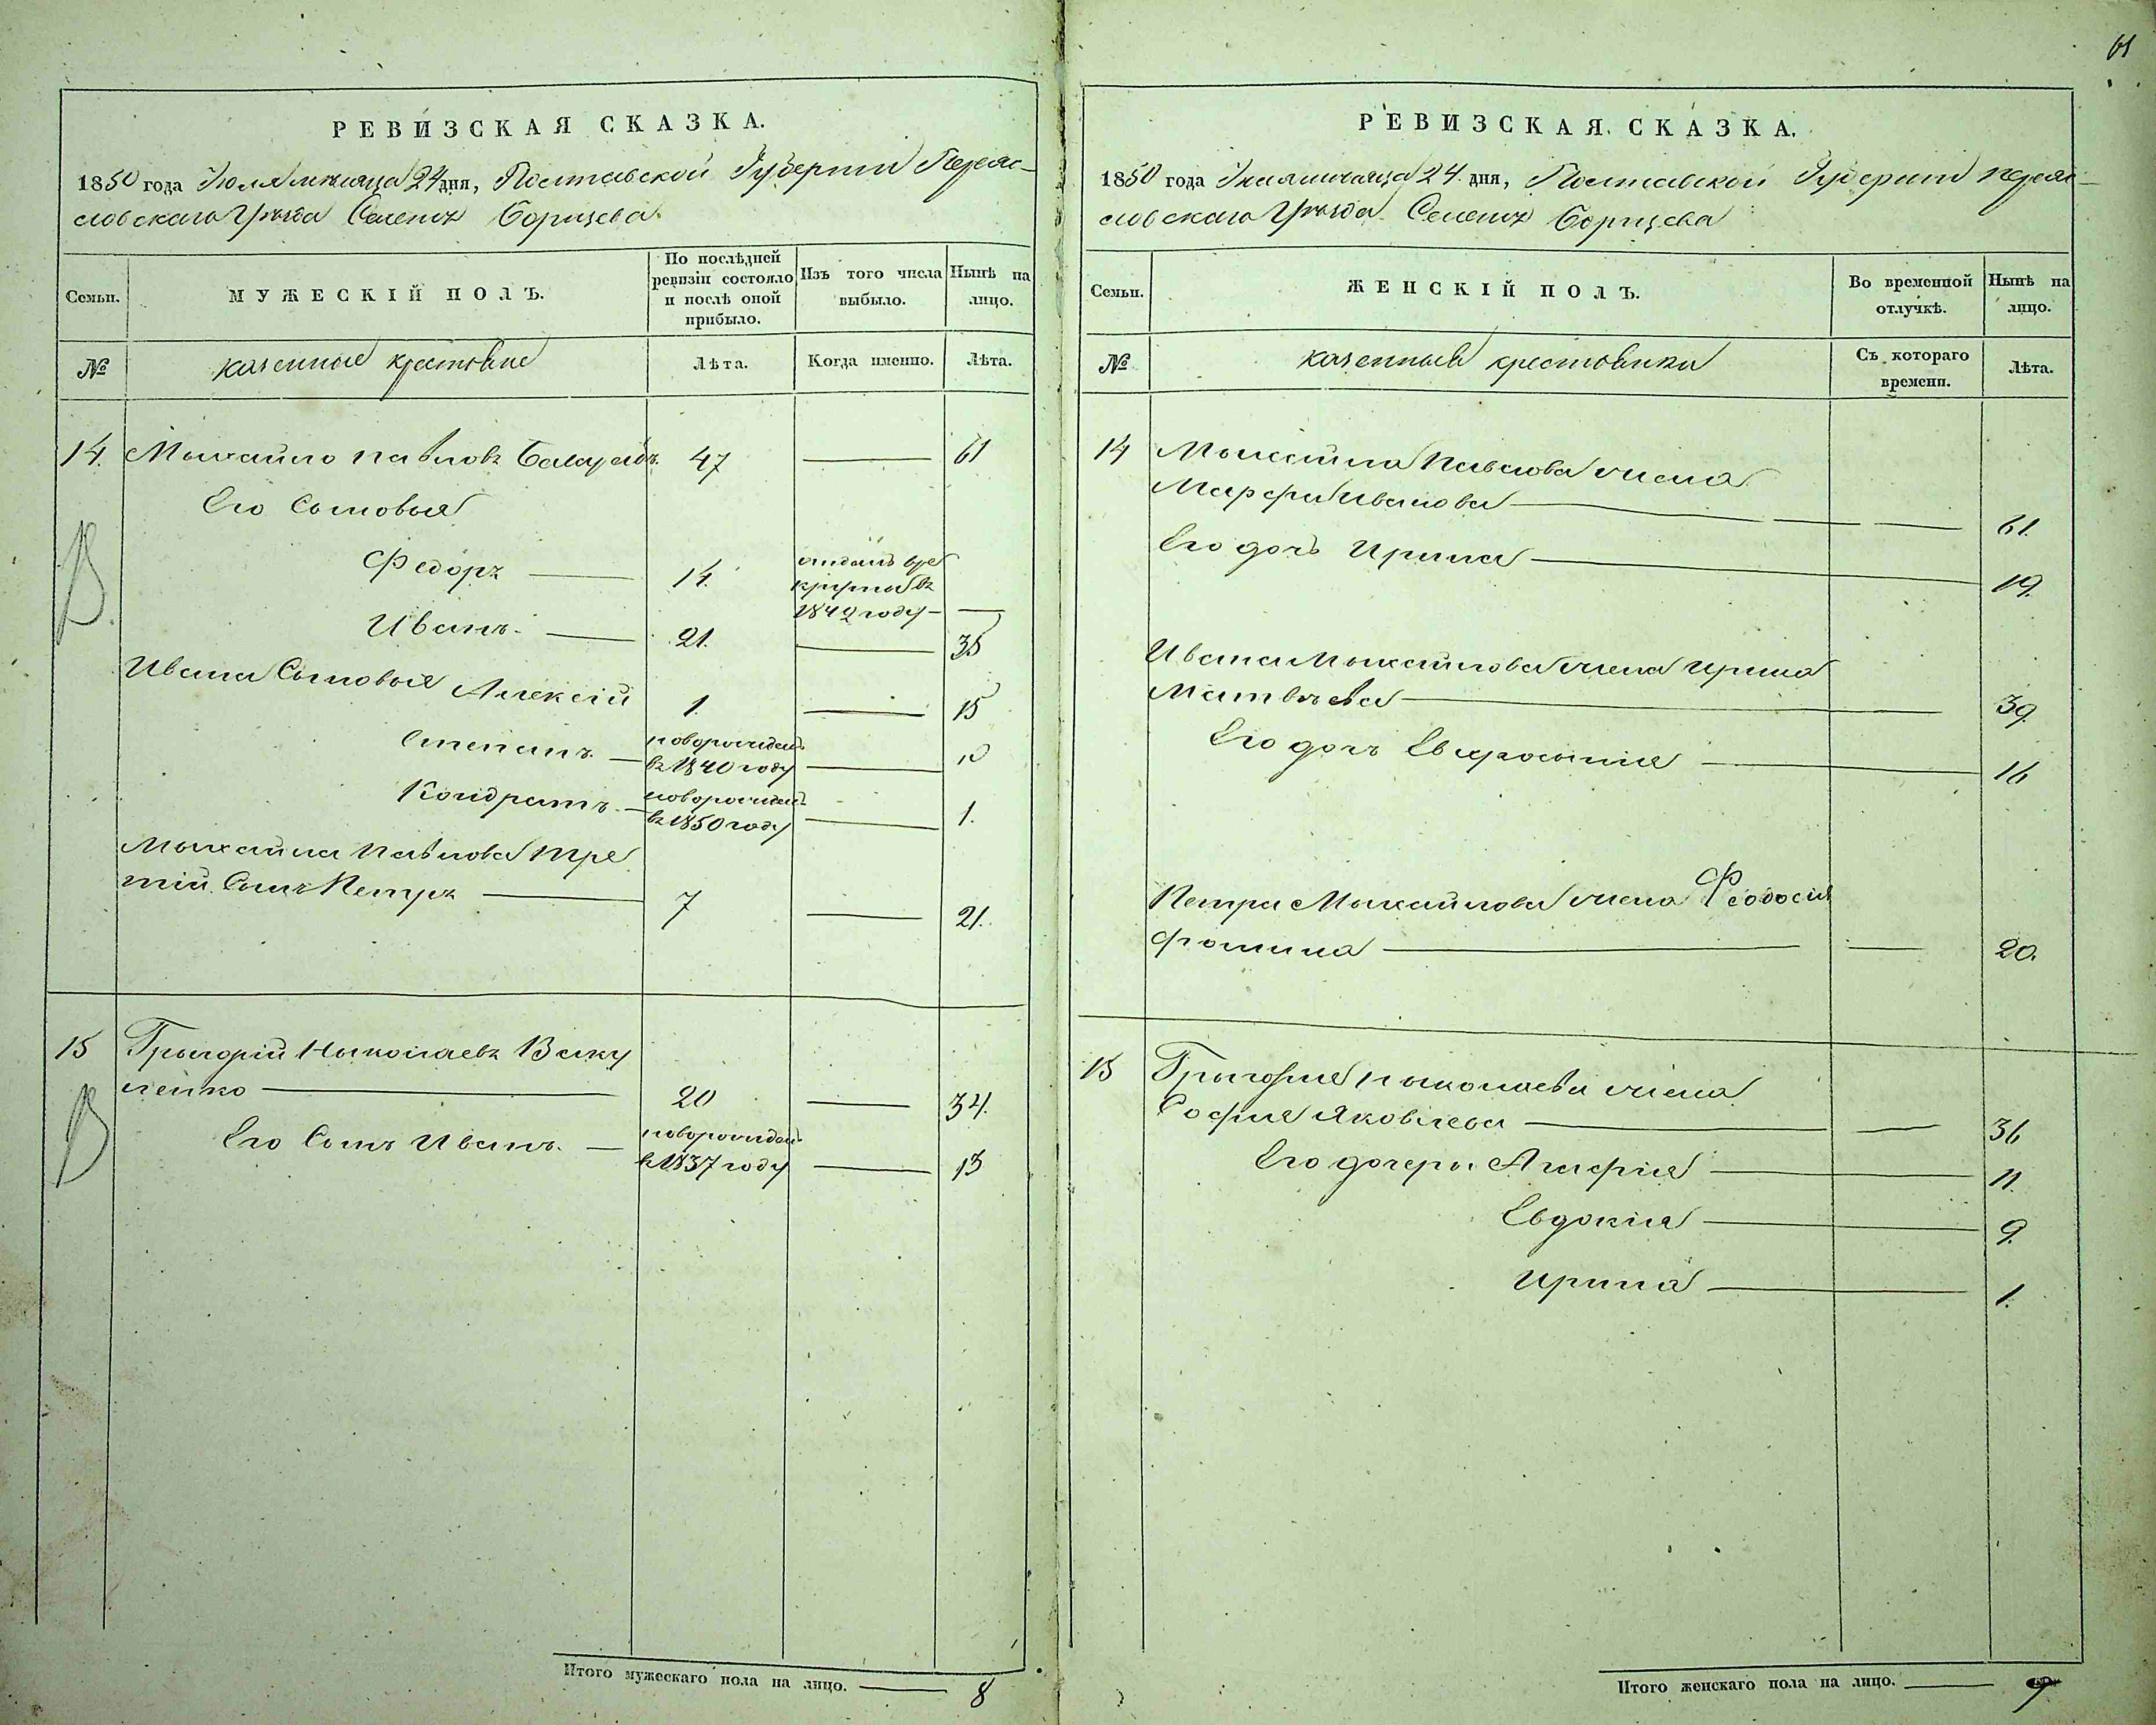 61
РЕВИЗСКАЯ СКАЗКА.
1850 года Іюля мѣсяца 24 дня, Полтавской Губерніи Переяс-
словскаго Уѣзда Селенія Борщева
Семьи.
МУЖЕСКІЙ ПОЛЪ.
По послѣдней ревизіи состояло и послѣ оной прибыло.
Изъ того числа выбыло.
Нынѣ на лицо.
№
казенные крестьяне
Лѣта.
Когда именно.
Лѣта.
14. Мыхайло Павловъ 47 — 61
Его Сыновья
Федоръ — 14. отданъ вре
круты въ
1842 году —
Иванъ. — 21. — 35
Ивана Сыновья Алексій 1. — 15
Степанъ. — новорожденъ
въ 1840 году — 10
Кондратъ. — новорожденъ
въ 1850 году — 1.
Мыхайла Павлова тре
тій Сынъ Петръ — 7 — 21.
15 Грыгорій Ныколаевъ Ваку
ленко — 20 — 34.
Его Сынъ Иванъ. — новорожденъ
в 1837 году — 13
Итого мужескаго пола на лицо. — 8
РЕВИЗСКАЯ СКАЗКА.
1850 года Іюля мѣсяца 24 дня, Полтавской Губерніи Переяс-
словскаго Уѣзда Селенія Борщева
Семьи.
ЖЕНСКІЙ ПОЛЪ.
Во временной отлучкѣ.
Нынѣ на лицо.
№
казенныя крестьянки
Съ котораго времени.
Лѣта.
14 Мыхайла Павлова жена
Марфа Иванова — 61.
Его дочь Ирина — 19.
Ивана Мыхайлова жена Ирина
Матвѣева — 39.
Его дочь Евфросинія — 16
Петра Мыхайлова жена Феодосія
Фомина — 20.
15 Грыгорія Ныколаева жена
Софія Яковлева — 36
Его дочери Агафія — 11.
Евдокія — 9.
Ирина — 1.
Итого женскаго пола на лицо. —